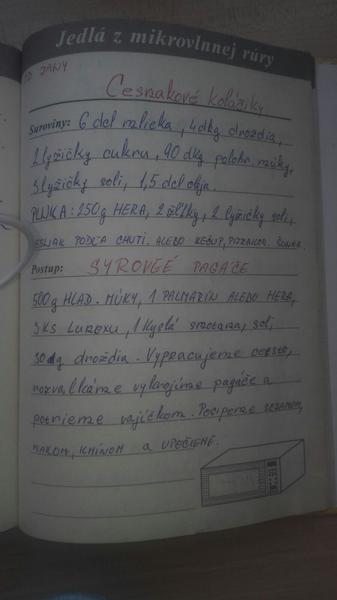 Jedlá z mikrovlnnej rúry
OD JANY
Cesnakové koláčiky
Suroviny: 6 dcl mlieka, 4dkg droždia,
2 lyžičky cukru, 90 dkg polohr. múky,
3 lyžičky soli, 1,5 dcl oleja.
PLNKA: 250g HERA, 2 žĺtky, 2 lyžičky soli,
CESNAK PODĽA CHUTI. ALEBO KEČUP, PIZZACOR,
Postup: SYROVÉÉ PAGÁČE
500g HLAD. MÚKY, 1 PALMARÍN ALEBO HERA,
3KS LUREXU, 1 Kyslá smotana, sol,
30dg droždia. Vypracujeme cesto,
rozvaľkáme vykrojíme pagáče a
potrieme vajíčkom. Posypeme SEZAMOM,
MAKOM, KMÍNOM a UPEČIEME.